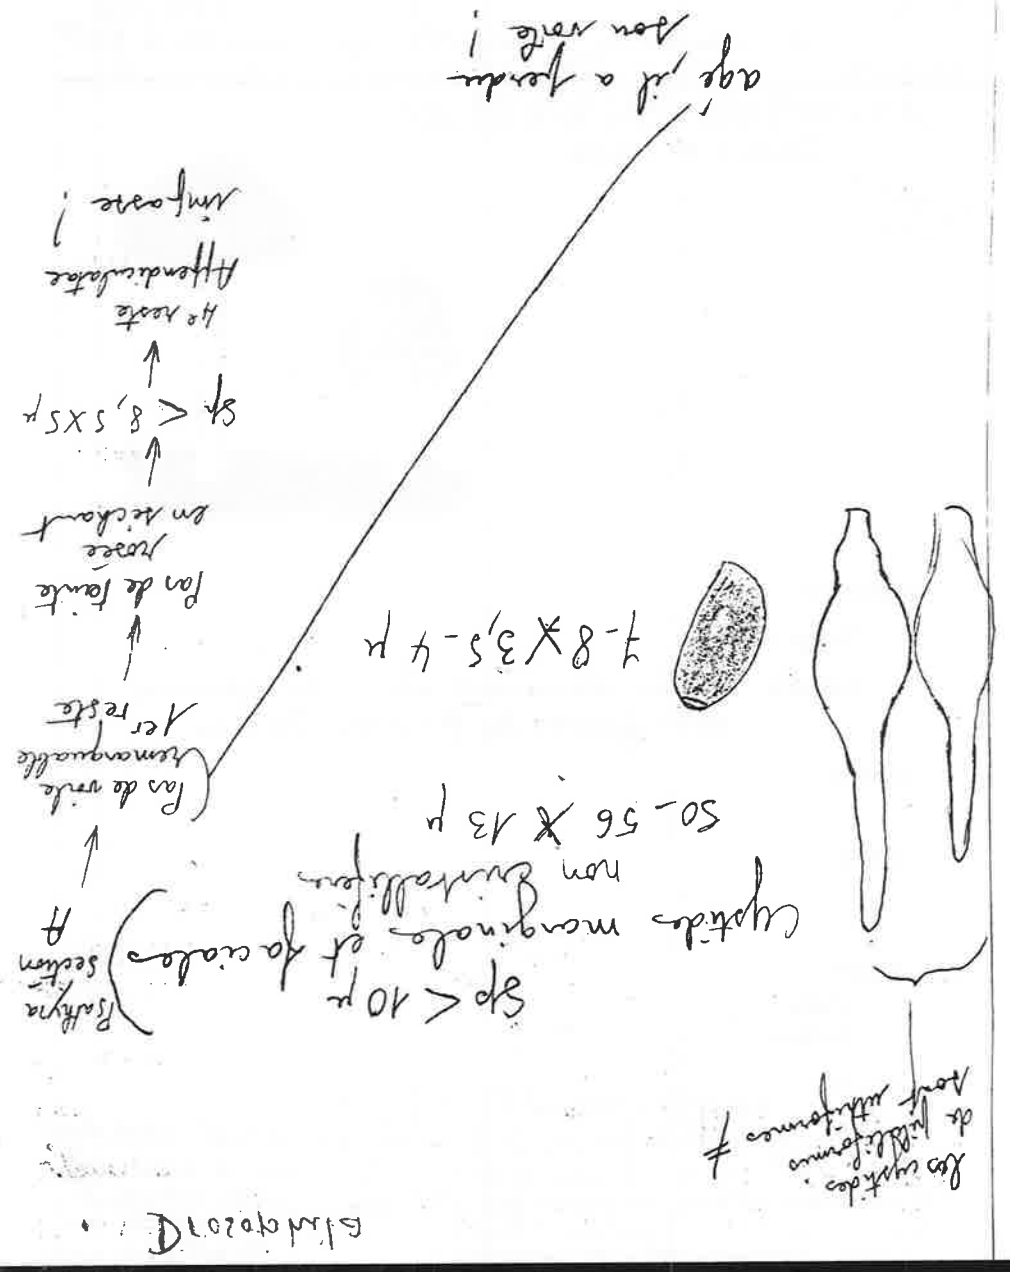 Drosophila
les cystides
de piluliformis
sont utriformes ≠
Sp < 10 µ
Cystides marginales et faciales
non cristallifères
50-56 X 13 µ
7-8 X 3,5-4 µ
Psathyra
section
A
Pas de voile
remarquable
1er reste
Pas de teinte
rosée
en séchant
Sp < 8,5X5 µ
4e reste
Appendiculatae
impasse !
agé, il a perdu
son voile !